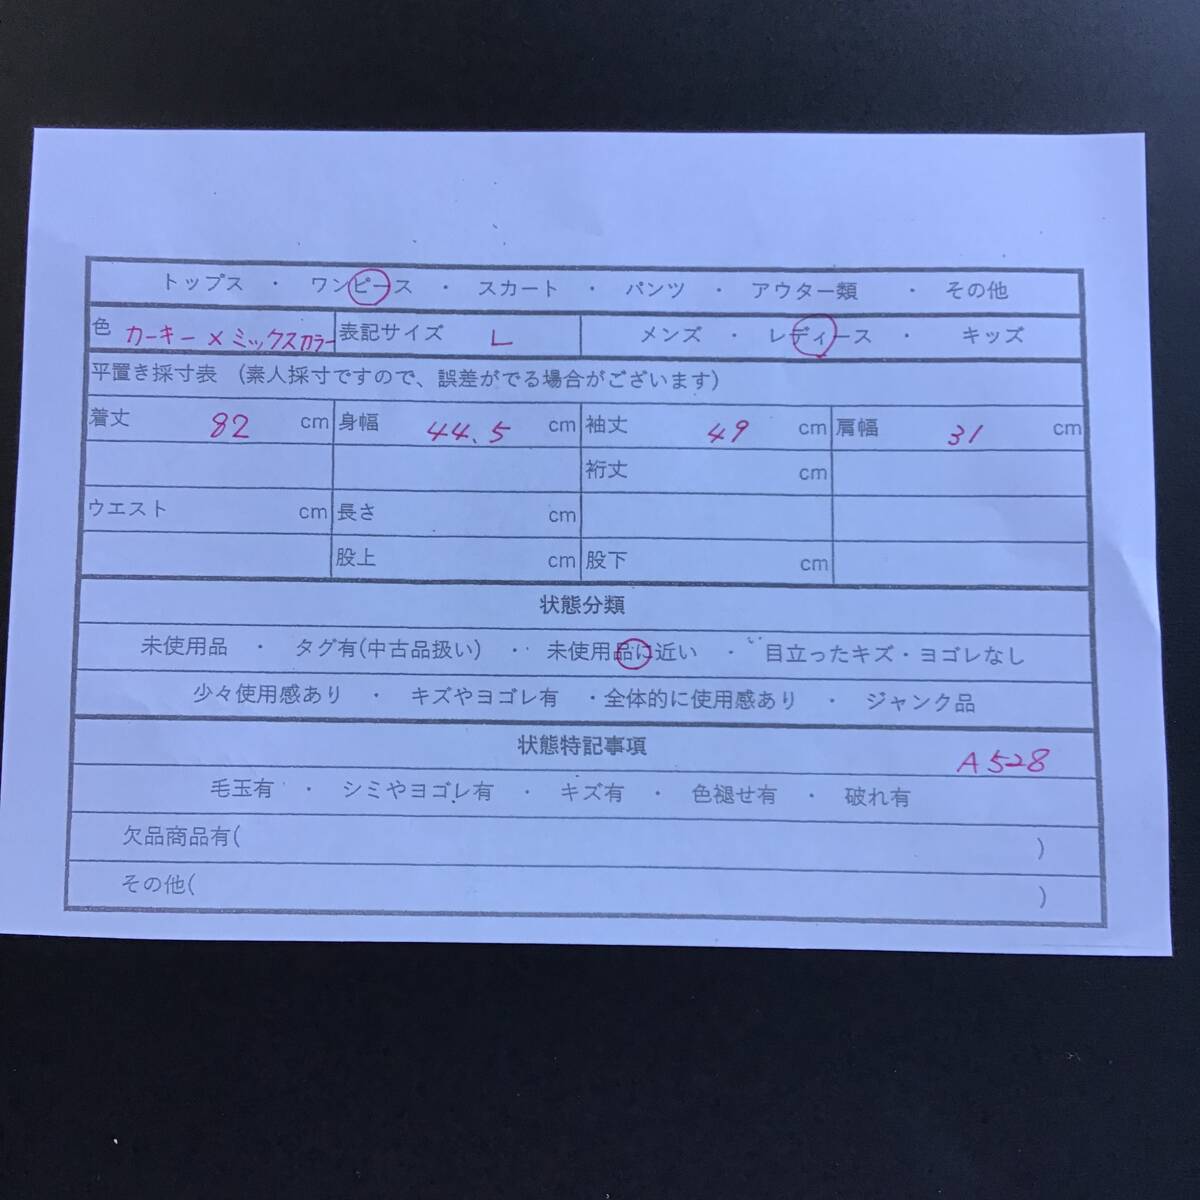 トップス ・ ワンピース ・ スカート ・ パンツ ・ アウター類 ・ その他
色 カーキー×ミックスカラー 表記サイズ L メンズ ・ レディース ・ キッズ
平置き採寸表 (素人採寸ですので、誤差がでる場合がございます)
着丈 82 cm 身幅 44.5 cm 袖丈 49 cm 肩幅 31 cm
裄丈 cm
ウエスト cm 長さ cm
股上 cm 股下 cm
状態分類
未使用品 ・ タグ有(中古品扱い) ・ 未使用品に近い ・ 目立ったキズ・ヨゴレなし
少々使用感あり ・ キズやヨゴレ有 ・全体的に使用感あり ・ ジャンク品
状態特記事項 A528
毛玉有 ・ シミやヨゴレ有 ・ キズ有 ・ 色褪せ有 ・ 破れ有
欠品商品有( )
その他( )